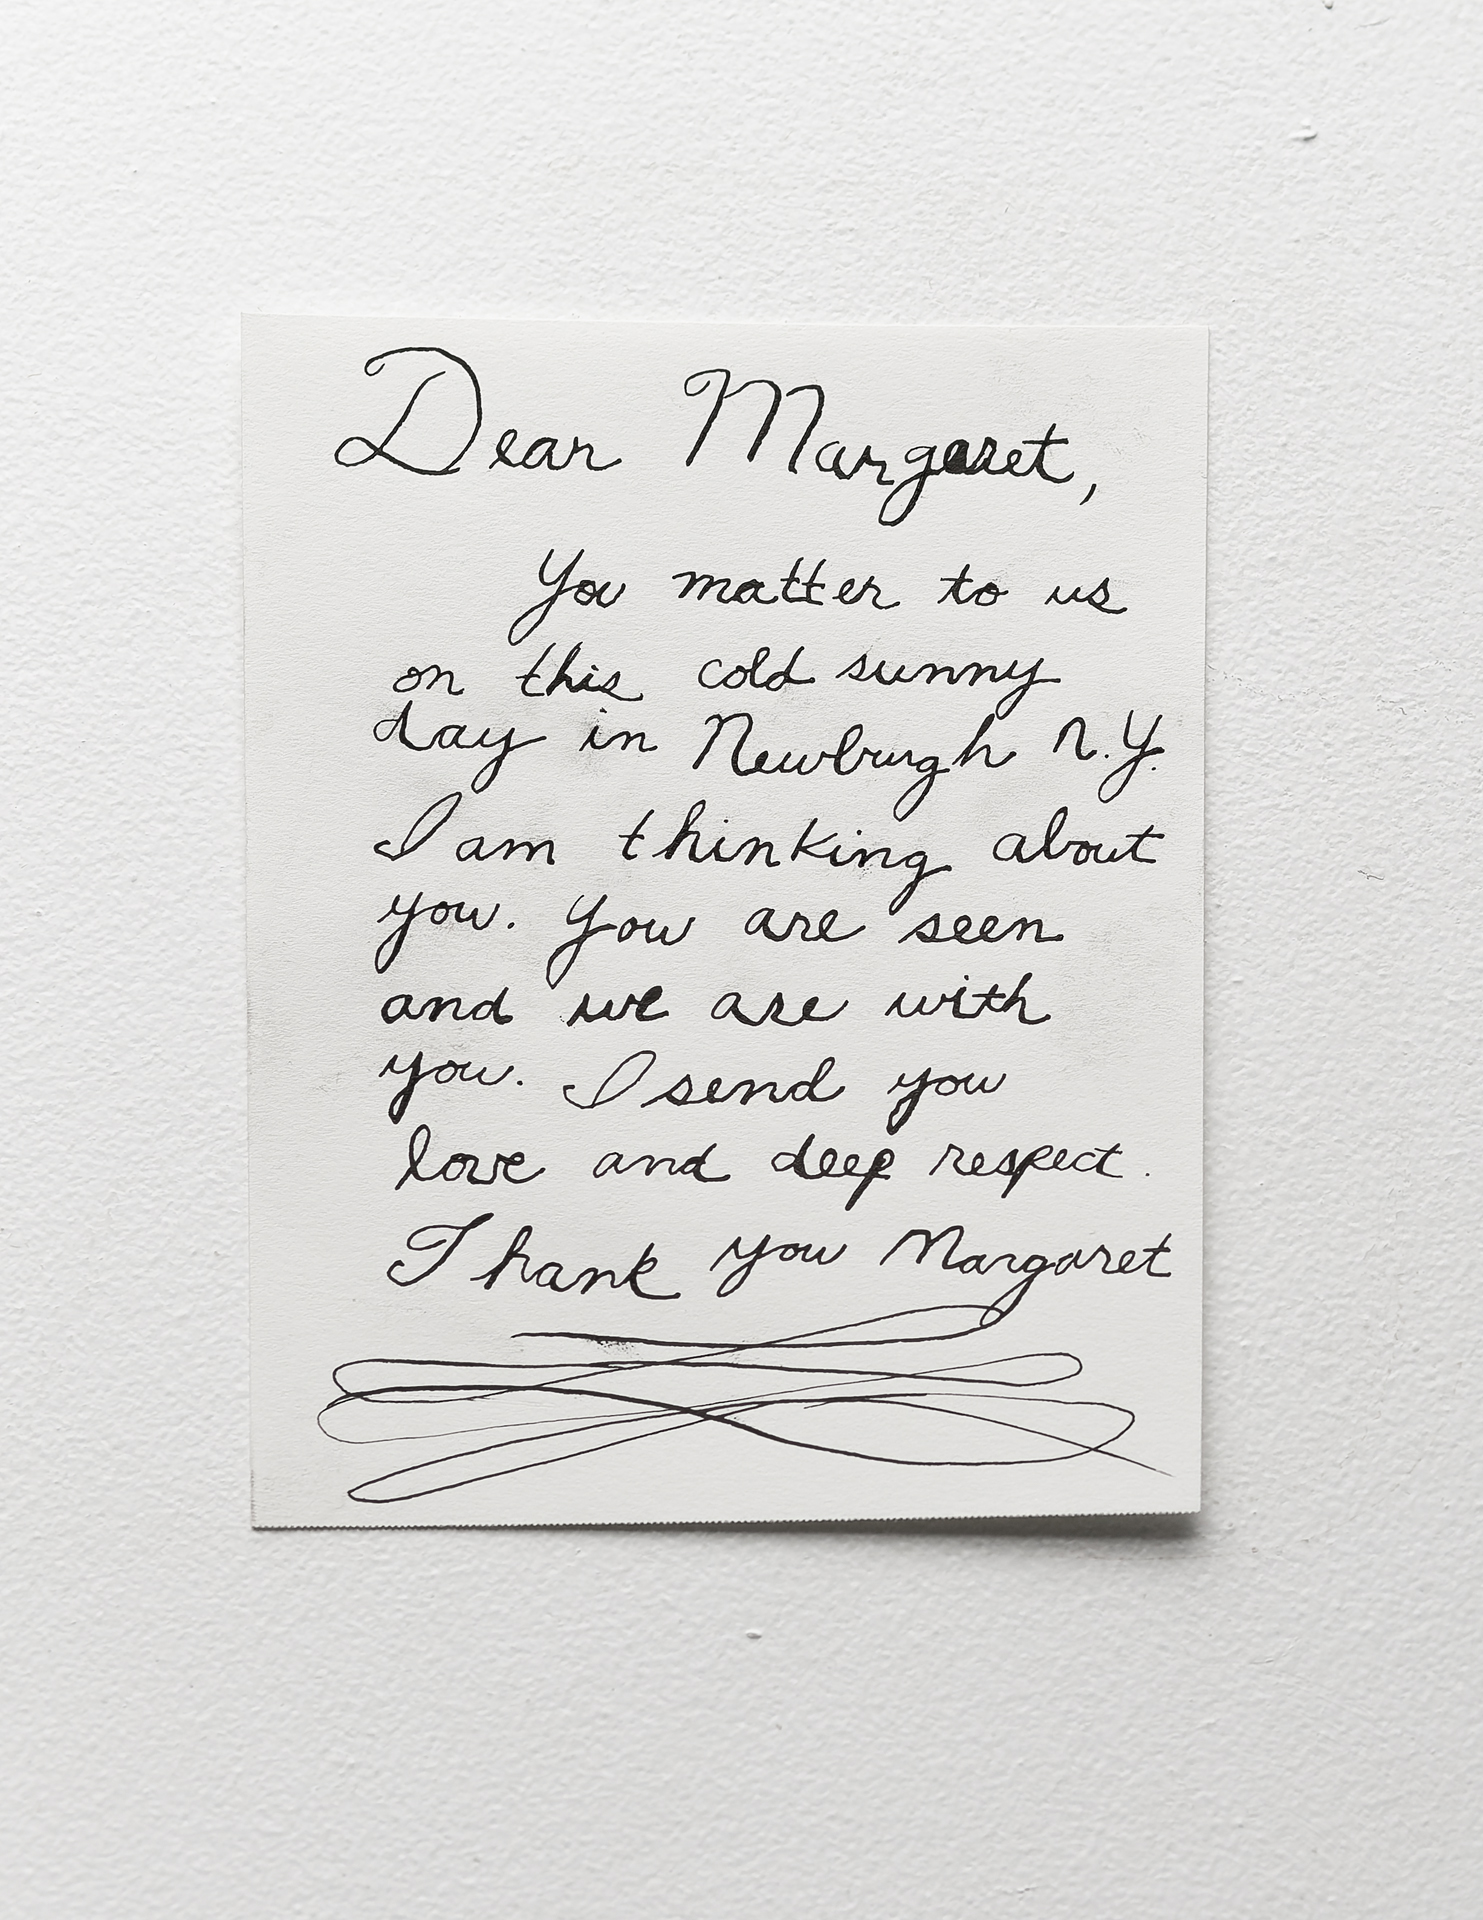 Dear Margaret,
You matter to us
on this cold sunny
day in Newburgh N.Y.
I am thinking about
you. You are seen
and we are with
you. I send you
love and deep respect.
Thank you Margaret